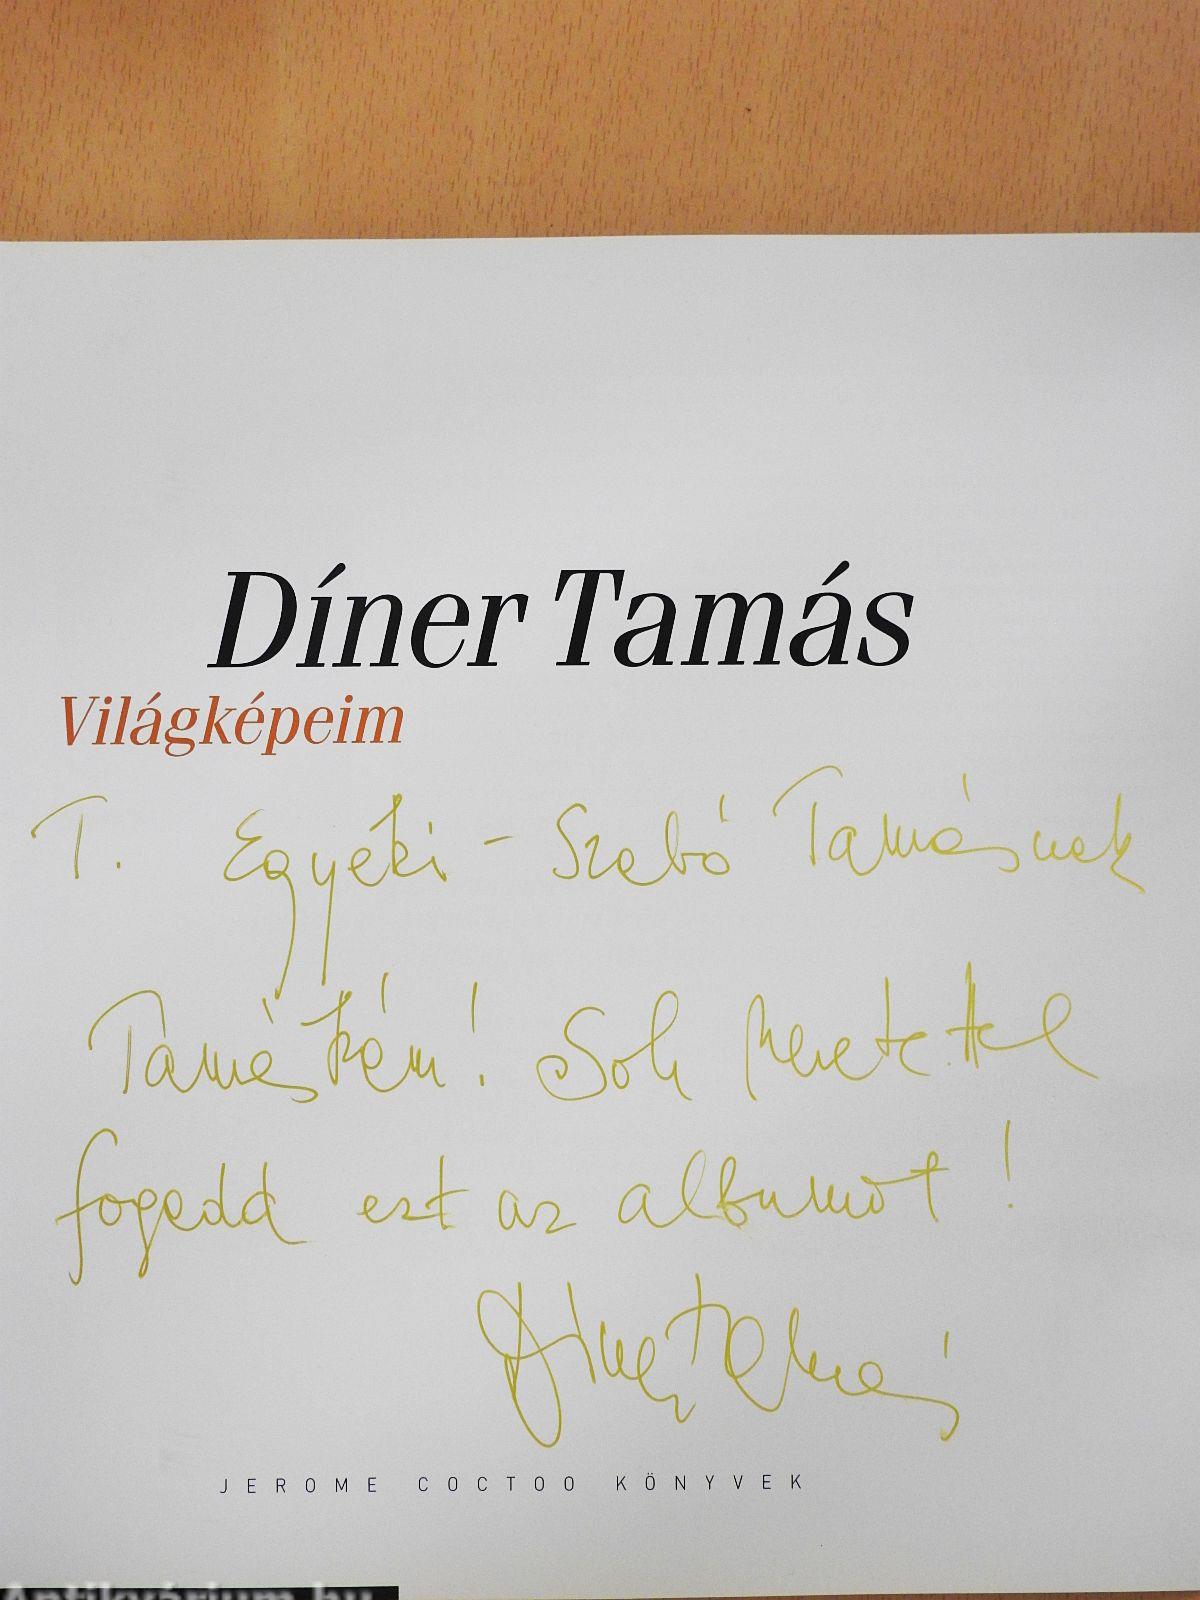 Díner Tamás
Világképeim
T. Egyeki-Szabó Tamásnak
Tamáskám! Sok szeretettel
fogadd ezt az albumot!
Díner Tamás
JEROME COCTOO KÖNYVEK
Antikvárium.hu